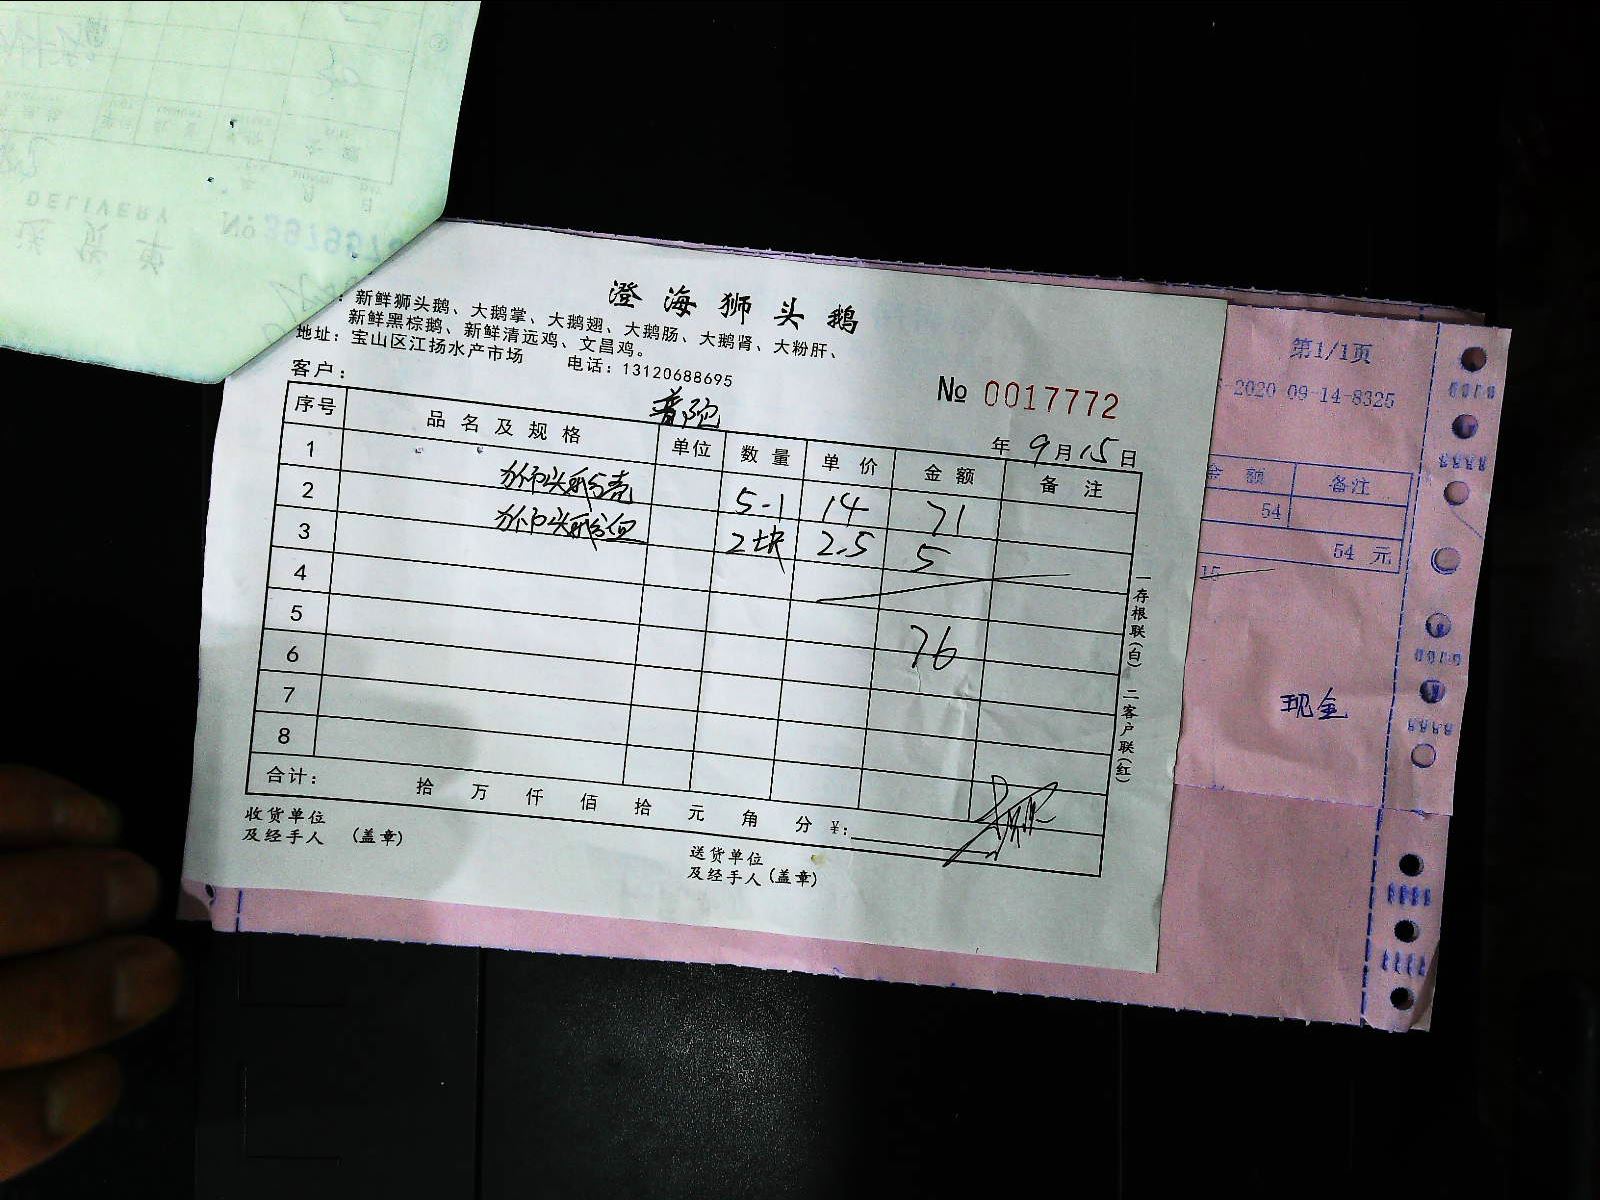 澄海狮头鹅
新鲜狮头鹅、大鹅掌、大鹅翅、大鹅肠、大鹅肾、大粉肝、
新鲜黑棕鹅、新鲜清远鸡、文昌鸡。
地址：宝山区江扬水产市场 电话：13120688695
客户： 普陀
№ 0017772
年 9月15日
序号 品名及规格 单位 数量 单价 金额 备注
1 5-1 14 71
2 2块 2.5 5
3
4
5 76
6
7
8
合计： 拾 万 仟 佰 拾 元 角 分 ¥:
收货单位
及经手人 (盖章)
送货单位
及经手人 (盖章)
一存根联(白) 二客户联(红)
第1/1页
2020 09-14-8325
金额 备注
54
54 元
15
现金
DELIVERY
送货单